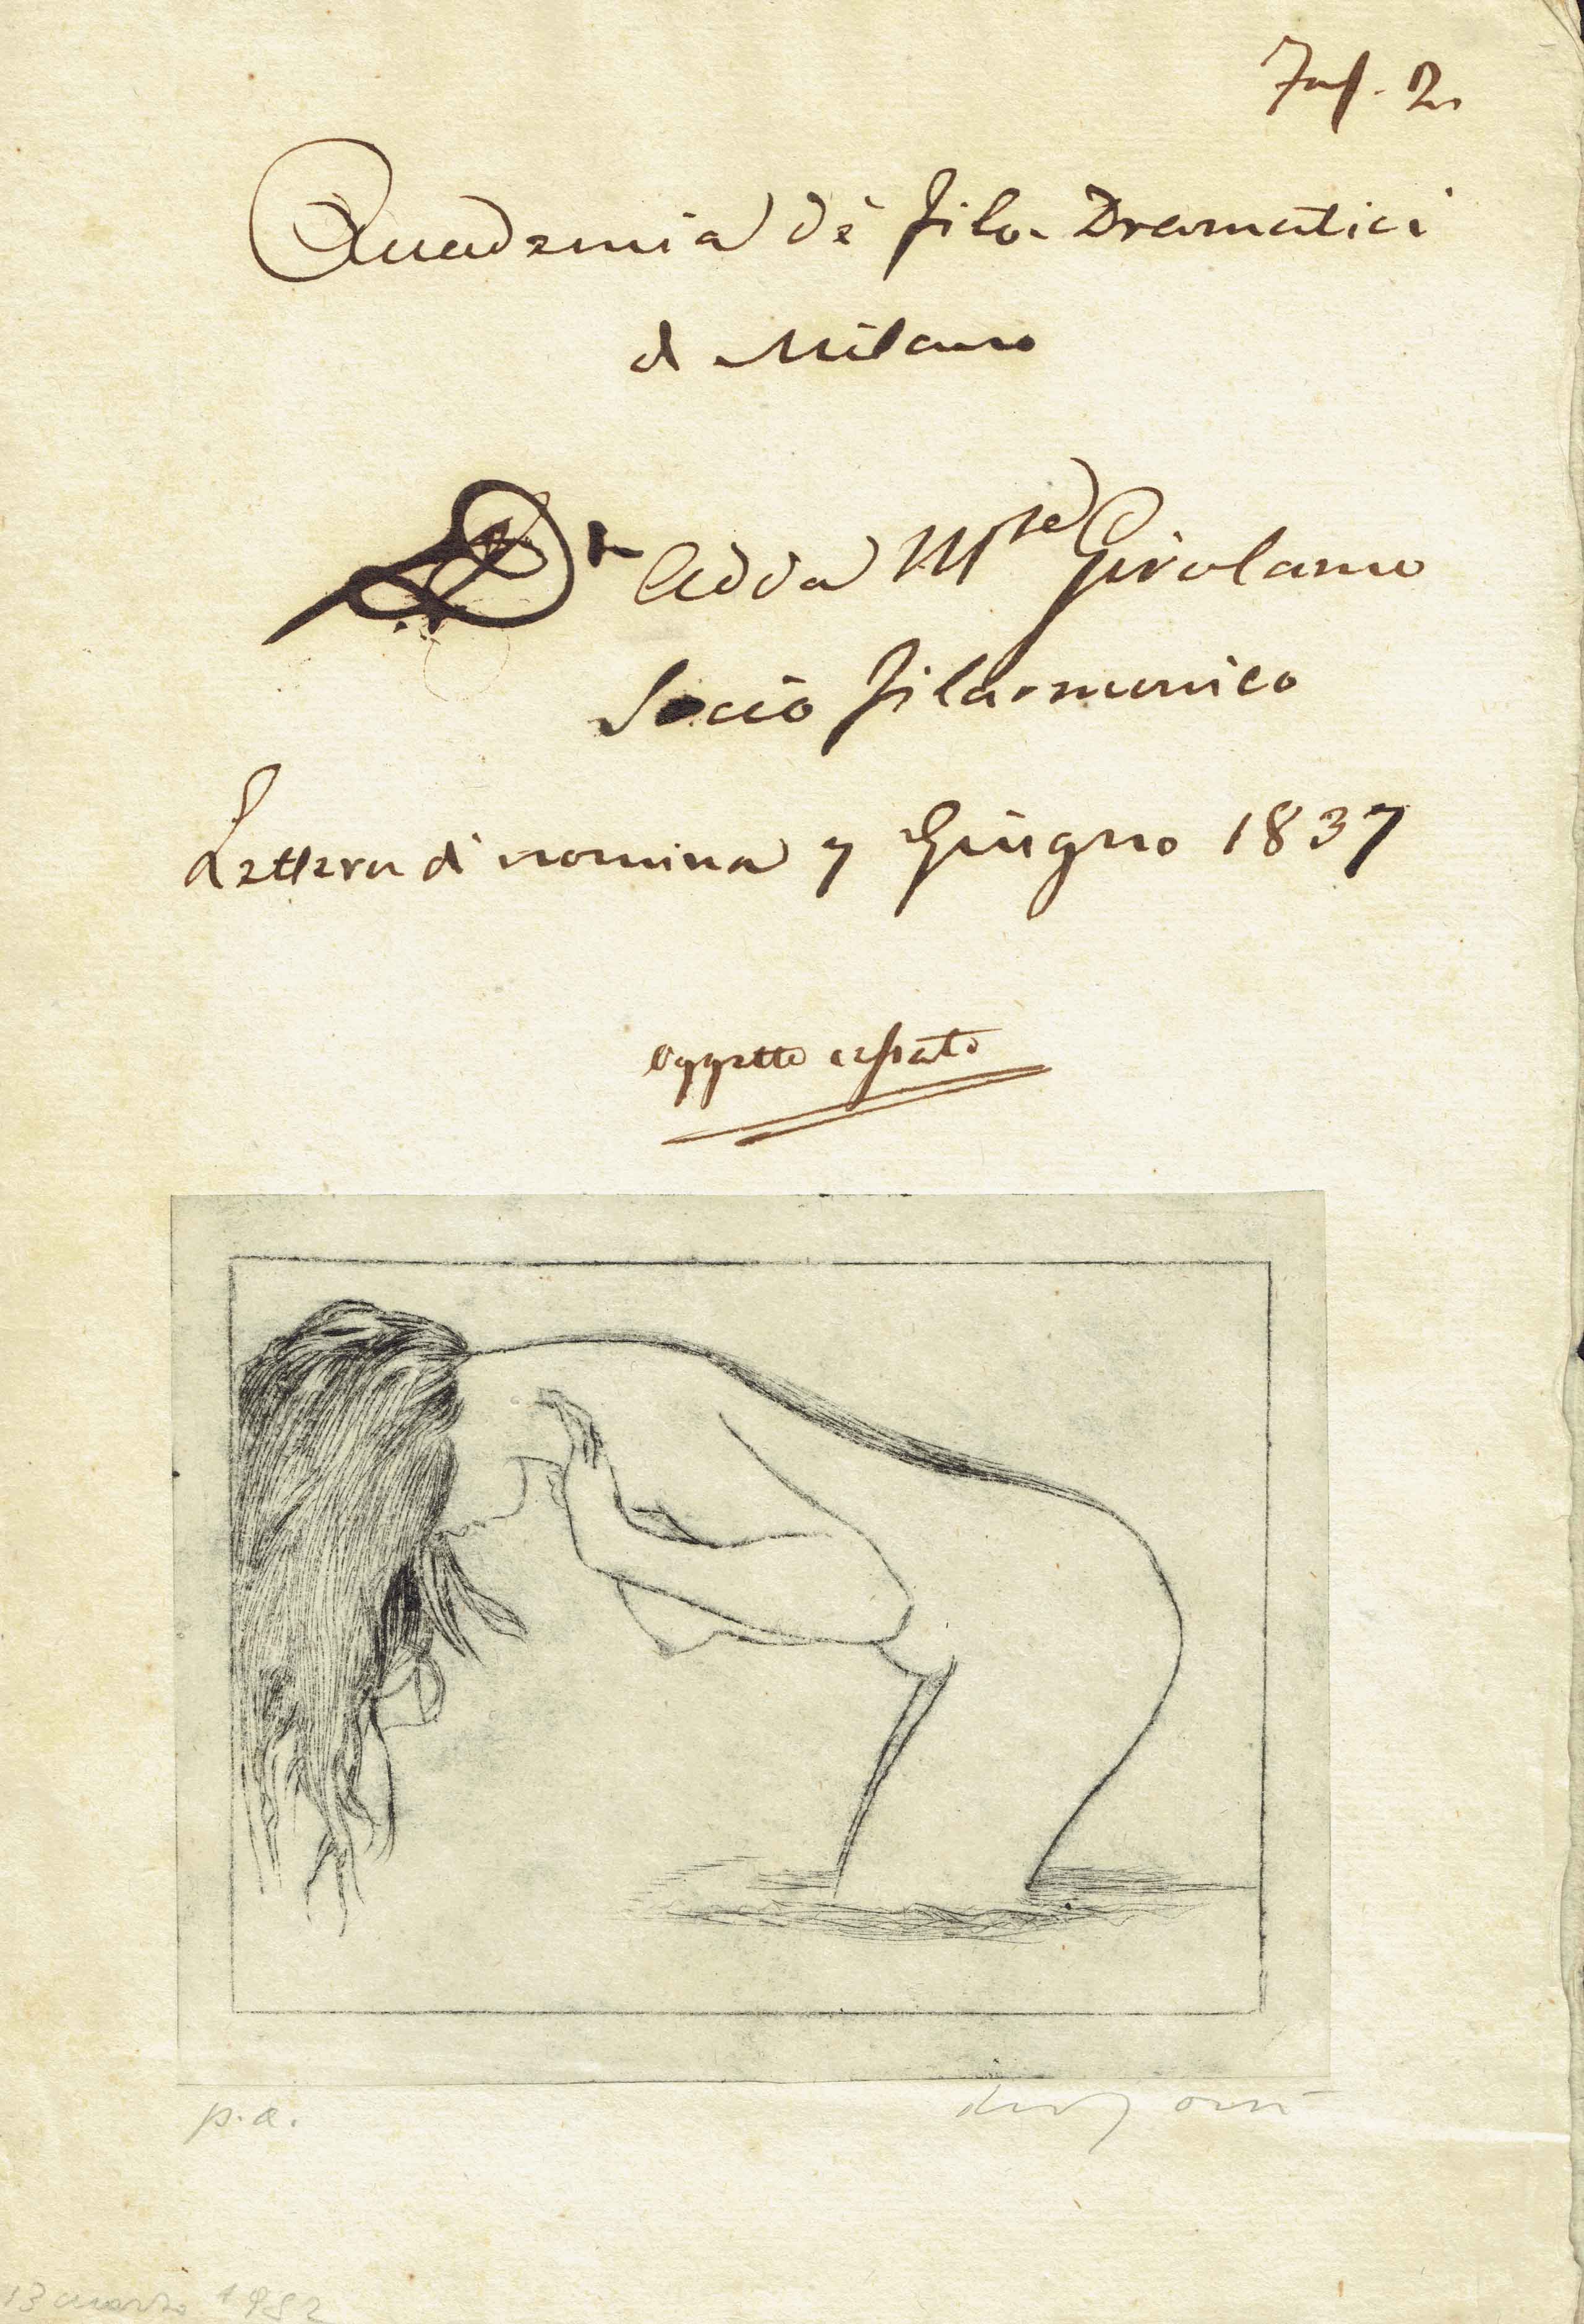 Fas. 2.
Accademia de' Filo-Dramatici
di Milano
Adda M.se Girolamo
Socio Filarmonico
Lettera di nomina 7 Giugno 1837
oggetto cessato
p.a.
13 marzo 1982